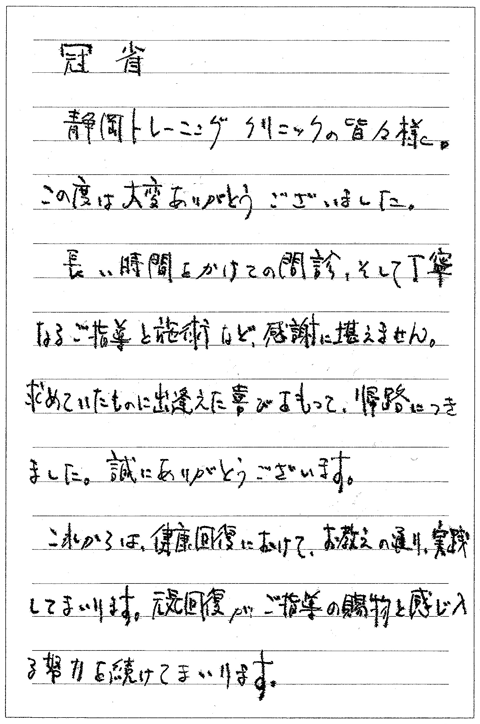 冠省
静岡トレーニングクリニックの皆々様に。
この度は大変ありがとうございました。
長い時間をかけての問診、そして丁寧
なるご指導と施術など、感謝に堪えません。
求めていたものに出逢えた喜びをもって、帰路につき
ました。誠にありがとうございます。
これからは、健康回復にむけて、お教えの通り、実践
してまいります。元気回復がご指導の賜物と感じ入
る努力を続けてまいります。